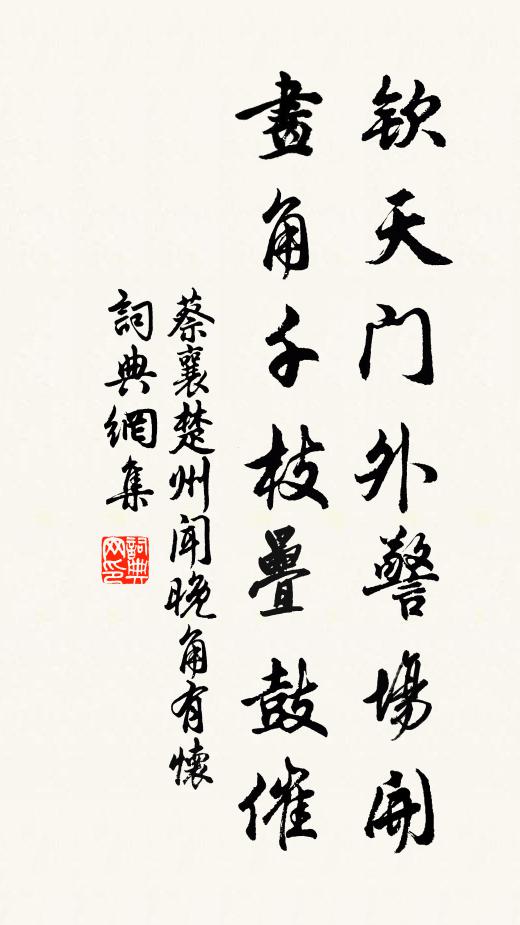 欽天門外警場開
畫角千枝疊鼓催
蔡襄楚州闻晚角有懷
詞典網集
詞典网印